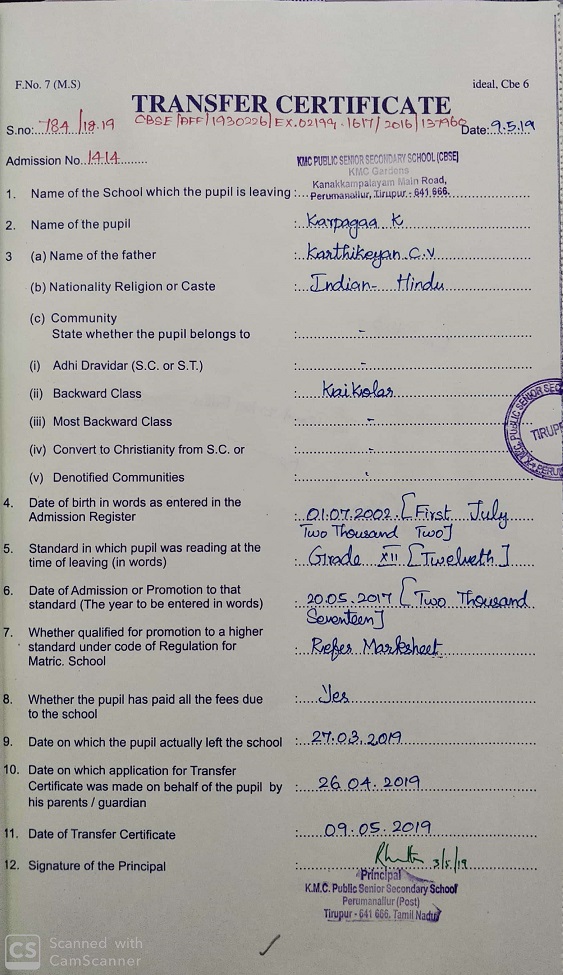 F.No. 7 (M.S) ideal, Cbe 6
TRANSFER CERTIFICATE
S.no: 784/18.19 CBSE/AFF/1930226/EX.02194.1617/2016/137960 Date: 9.5.19
Admission No. 1414
KMC PUBLIC SENIOR SECONDARY SCHOOL (CBSE)
KMC Gardens
Kanakkampalayam Main Road,
1. Name of the School which the pupil is leaving : Perumanallur, Tirupur - 641 666.
2. Name of the pupil : Karpagaa K
3 (a) Name of the father : Karthikeyan C.V
(b) Nationality Religion or Caste : Indian - Hindu
(c) Community
State whether the pupil belongs to : -
(i) Adhi Dravidar (S.C. or S.T.) : -
(ii) Backward Class : Kaikolar
(iii) Most Backward Class : -
(iv) Convert to Christianity from S.C. or : -
(v) Denotified Communities : -
4. Date of birth in words as entered in the
Admission Register : 01.07.2002 [First July
Two Thousand Two]
5. Standard in which pupil was reading at the
time of leaving (in words) : Grade XII [Twelveth]
6. Date of Admission or Promotion to that
standard (The year to be entered in words) : 20.05.2017 [Two Thousand
Seventeen]
7. Whether qualified for promotion to a higher
standard under code of Regulation for : Refer Marksheet
Matric. School
8. Whether the pupil has paid all the fees due : Yes
to the school
9. Date on which the pupil actually left the school : 27.03.2019
10. Date on which application for Transfer
Certificate was made on behalf of the pupil by : 26.04.2019
his parents / guardian
11. Date of Transfer Certificate : 09.05.2019
12. Signature of the Principal : 3/5/19
Principal
K.M.C. Public Senior Secondary School
Perumanallur (Post)
Tirupur - 641 666. Tamil Nadu
K.M.C. PUBLIC SENIOR SEC
TIRUP
PERU
CS Scanned with
CamScanner